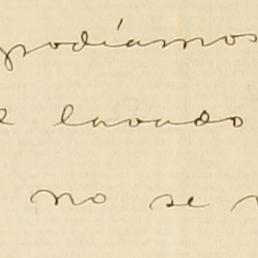 podíamos
lavado
no se